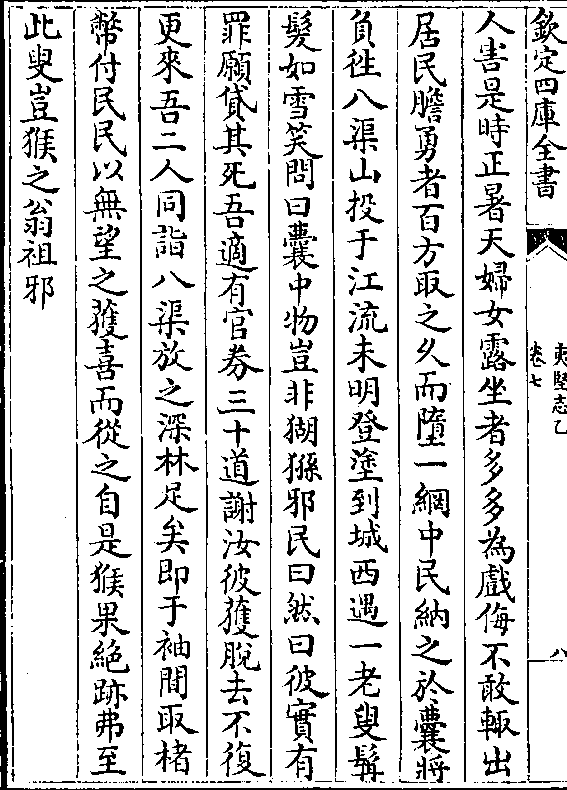 欽定四庫全書
夷堅志乙
卷七
八
人害是時正暑天婦女露坐者多多為戲侮不敢輙出
居民膽勇者百方取之乆而墮一網中民納之於囊將
負徃八渠山投于江流未明登塗到城西遇一老叟鬅
髮如雪笑問曰囊中物豈非猢猻邪民曰然曰彼實有
罪願貸其死吾適有官券三十道謝汝彼獲脫去不復
更來吾二人同詣八渠放之深林足矣即于袖間取楮
幣付民民以無望之獲喜而從之自是猴果絕跡弗至
此叟豈猴之翁祖邪